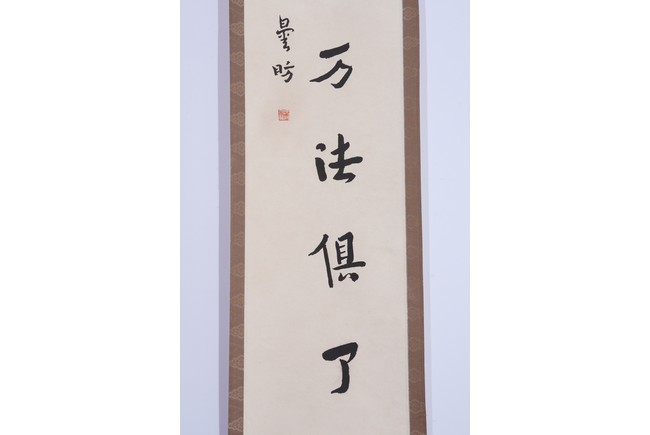 万法俱了
曇昉